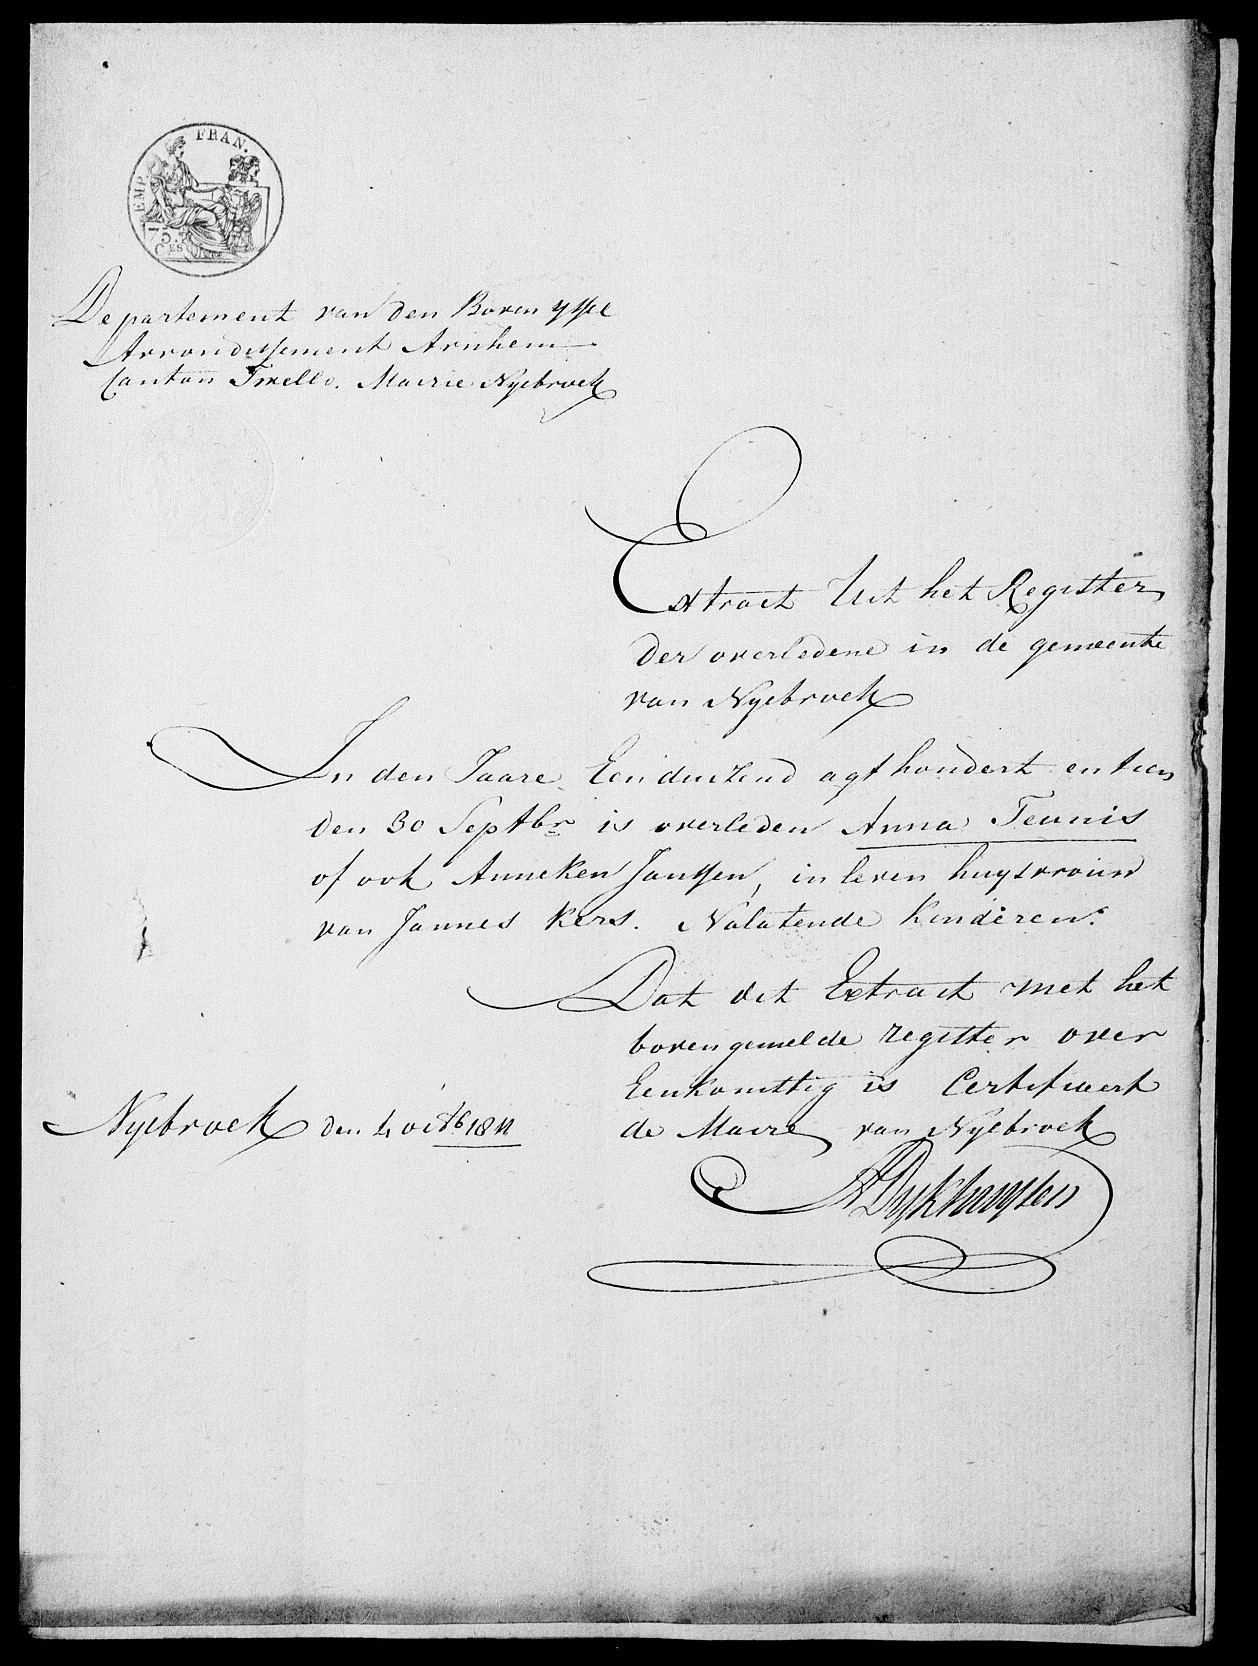 EMP. FRAN.
75.
CES
Departement van den Boven yssel
Arrondissement Arnhem
Canton Twello. Mairie Nyebroek
Extract Uit het Register
der overledene in de gemeente
van Nyebroek
In den Jaare Eenduizend agt hondert en tien
den 30 Septbr is overleden Anna Teunis
of ook Anneken Janssen, in leven huysvrouw
van Jannes Kers. Nalatende kinderen.
Dat dit Extract met het
bovengemelde register over
Eenkomstig is Certifieert
de Maire van Nyebroek
Nyebroek den 4 octb 1811
A Dykhuysen